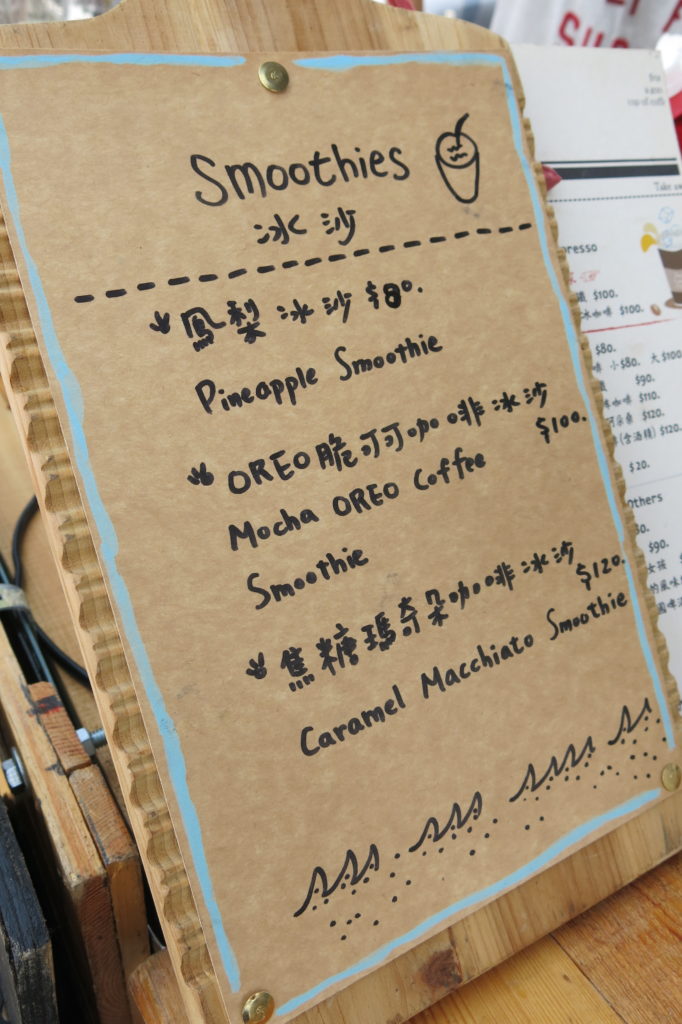 Smoothies
冰沙
鳳梨冰沙 $80.
Pineapple Smoothie
OREO脆可可咖啡冰沙
$100.
Mocha OREO Coffee
Smoothie
焦糖瑪奇朵咖啡冰沙
$120.
Caramel Macchiato Smoothie
cup of coffe
Take aw
presso
$100.
冰咖啡 $100.
$80.
小$80. 大$100
$90.
$110.
$120.
(含酒精) $120.
$20.
Others
$90.